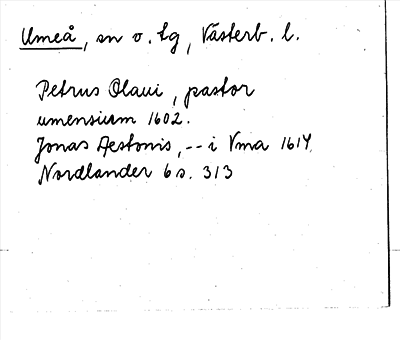 Umeå, sn o. tg, Västerb. l.
Petrus Olaui, pastor
umensium 1602.
Jonas Aestonis, -- i Vma 1614.
Nordlander 6 s. 313